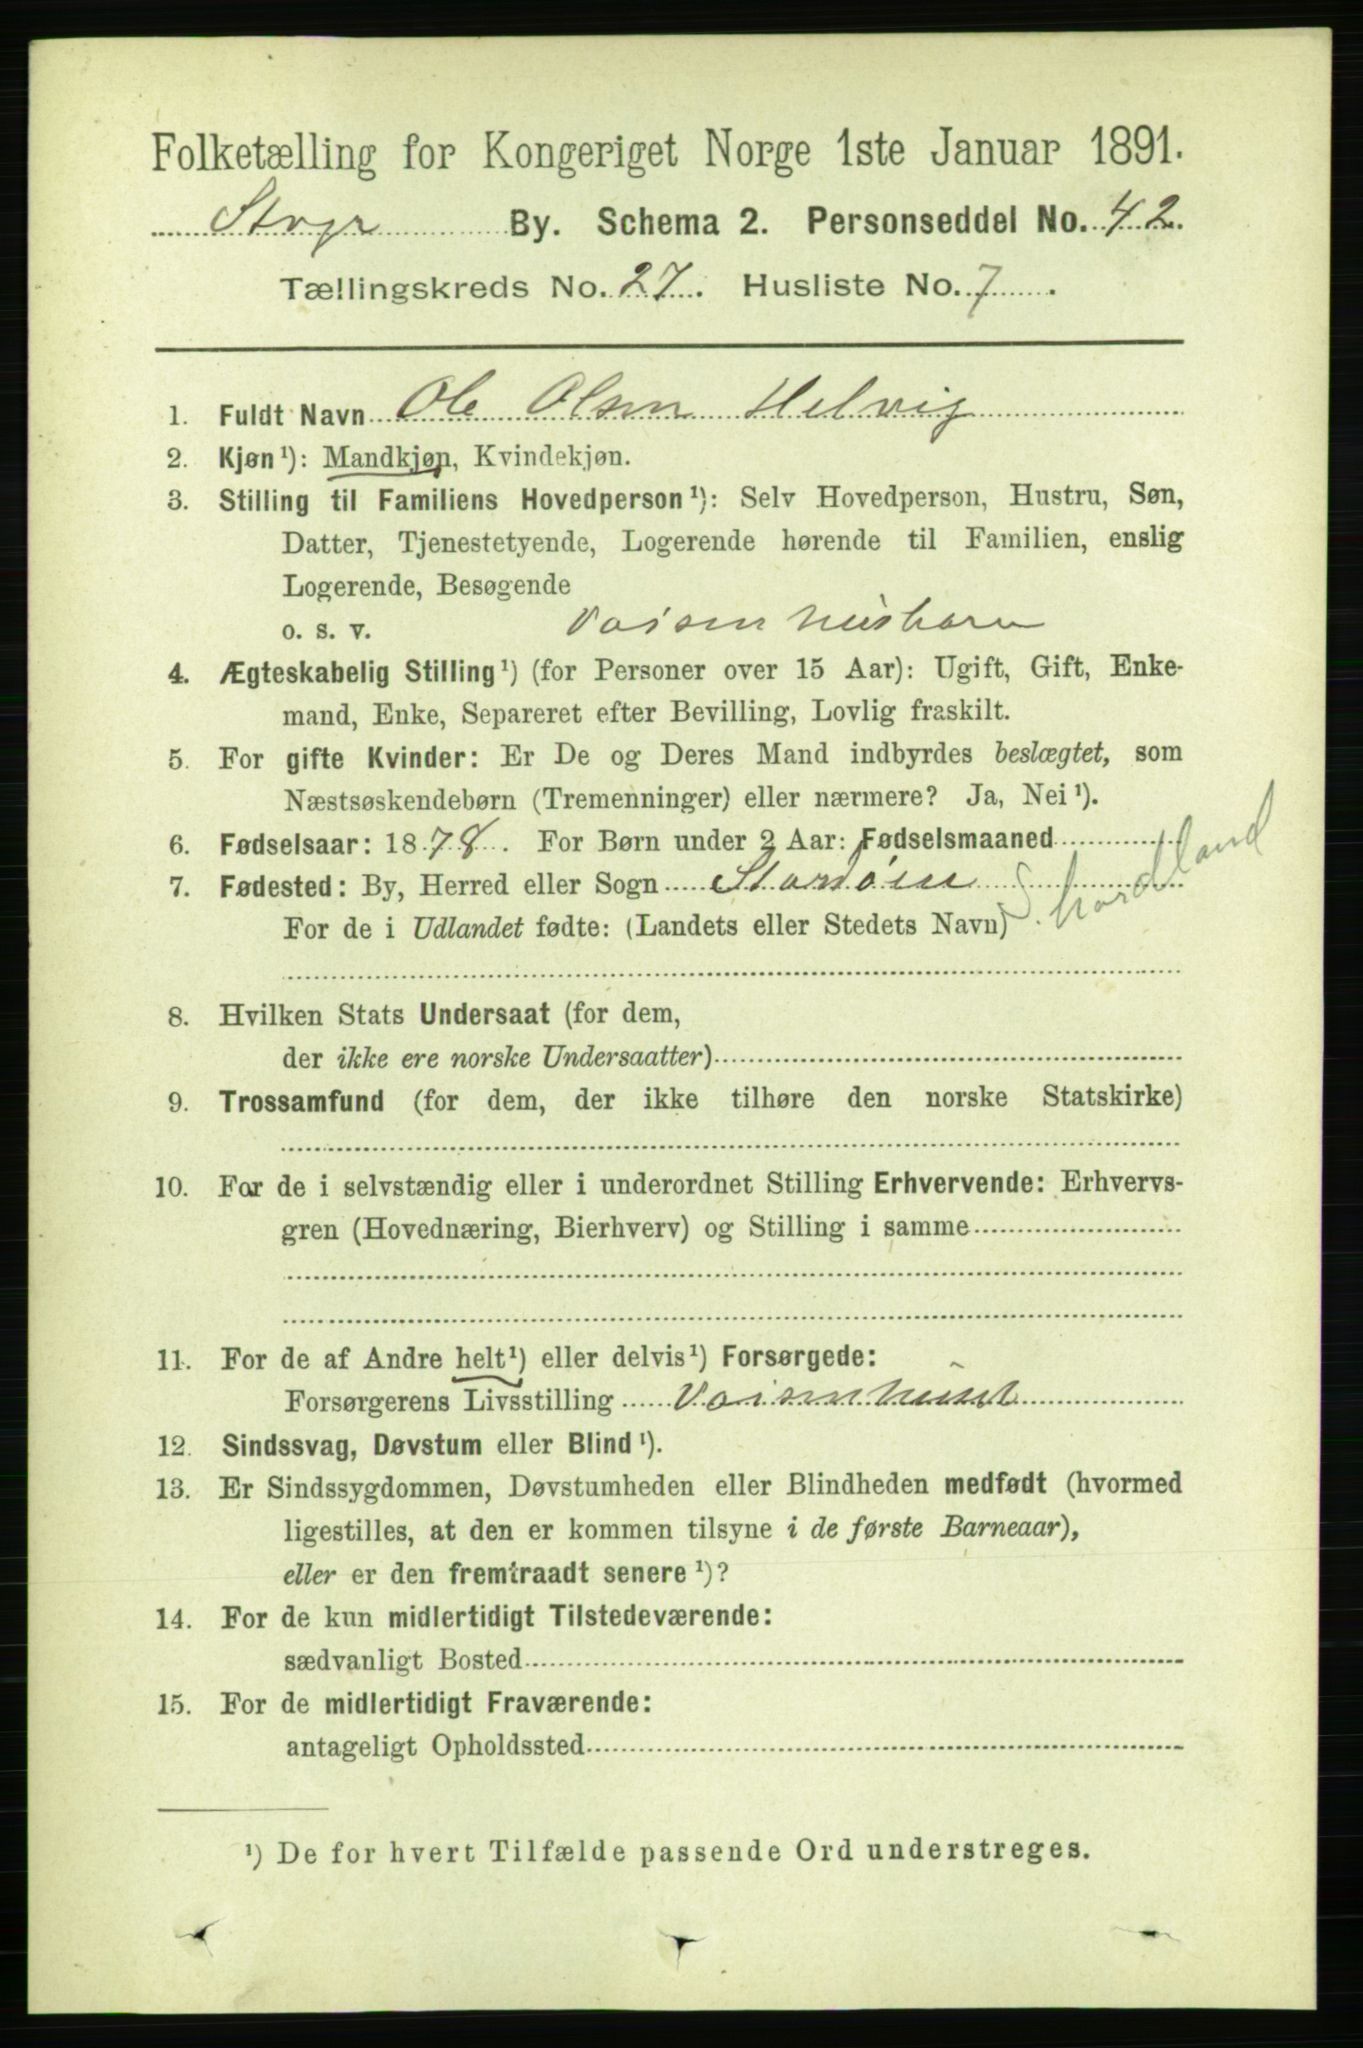 Folketælling for Kongeriget Norge 1ste Januar 1891.
Stvgr By. Schema 2. Personseddel No. 42.
Tællingskreds No. 27. Husliste No. 7.
1. Fuldt Navn Ole Olsen Helvig
2. Kjøn ¹): Mandkjøn, Kvindekjøn.
3. Stilling til Familiens Hovedperson ¹): Selv Hovedperson, Hustru, Søn,
Datter, Tjenestetyende, Logerende hørende til Familien, enslig
Logerende, Besøgende
o. s. v. Vaisenhusbarn
4. Ægteskabelig Stilling ¹) (for Personer over 15 Aar): Ugift, Gift, Enke-
mand, Enke, Separeret efter Bevilling, Lovlig fraskilt.
5. For gifte Kvinder: Er De og Deres Mand indbyrdes beslægtet, som
Næstsøskendebørn (Tremenninger) eller nærmere? Ja, Nei ¹).
6. Fødselsaar: 1878. For Børn under 2 Aar: Fødselsmaaned
7. Fødested: By, Herred eller Sogn Stordøen S. hordland
For de i Udlandet fødte: (Landets eller Stedets Navn)
8. Hvilken Stats Undersaat (for dem,
der ikke ere norske Undersaatter)
9. Trossamfund (for dem, der ikke tilhøre den norske Statskirke)
10. For de i selvstændig eller i underordnet Stilling Erhvervende: Erhvervs-
gren (Hovednæring, Bierhverv) og Stilling i samme
11. For de af Andre helt ¹) eller delvis ¹) Forsørgede:
Forsørgerens Livsstilling Vaisenhuset
12. Sindssvag, Døvstum eller Blind ¹).
13. Er Sindssygdommen, Døvstumheden eller Blindheden medfødt (hvormed
ligestilles, at den er kommen tilsyne i de første Barneaar),
eller er den fremtraadt senere ¹)?
14. For de kun midlertidigt Tilstedeværende:
sædvanligt Bosted
15. For de midlertidigt Fraværende:
antageligt Opholdssted
¹) De for hvert Tilfælde passende Ord understreges.